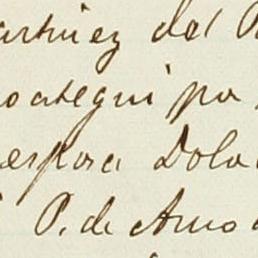 artinez del
oategui pa
esposa Dolo
P. de Amo